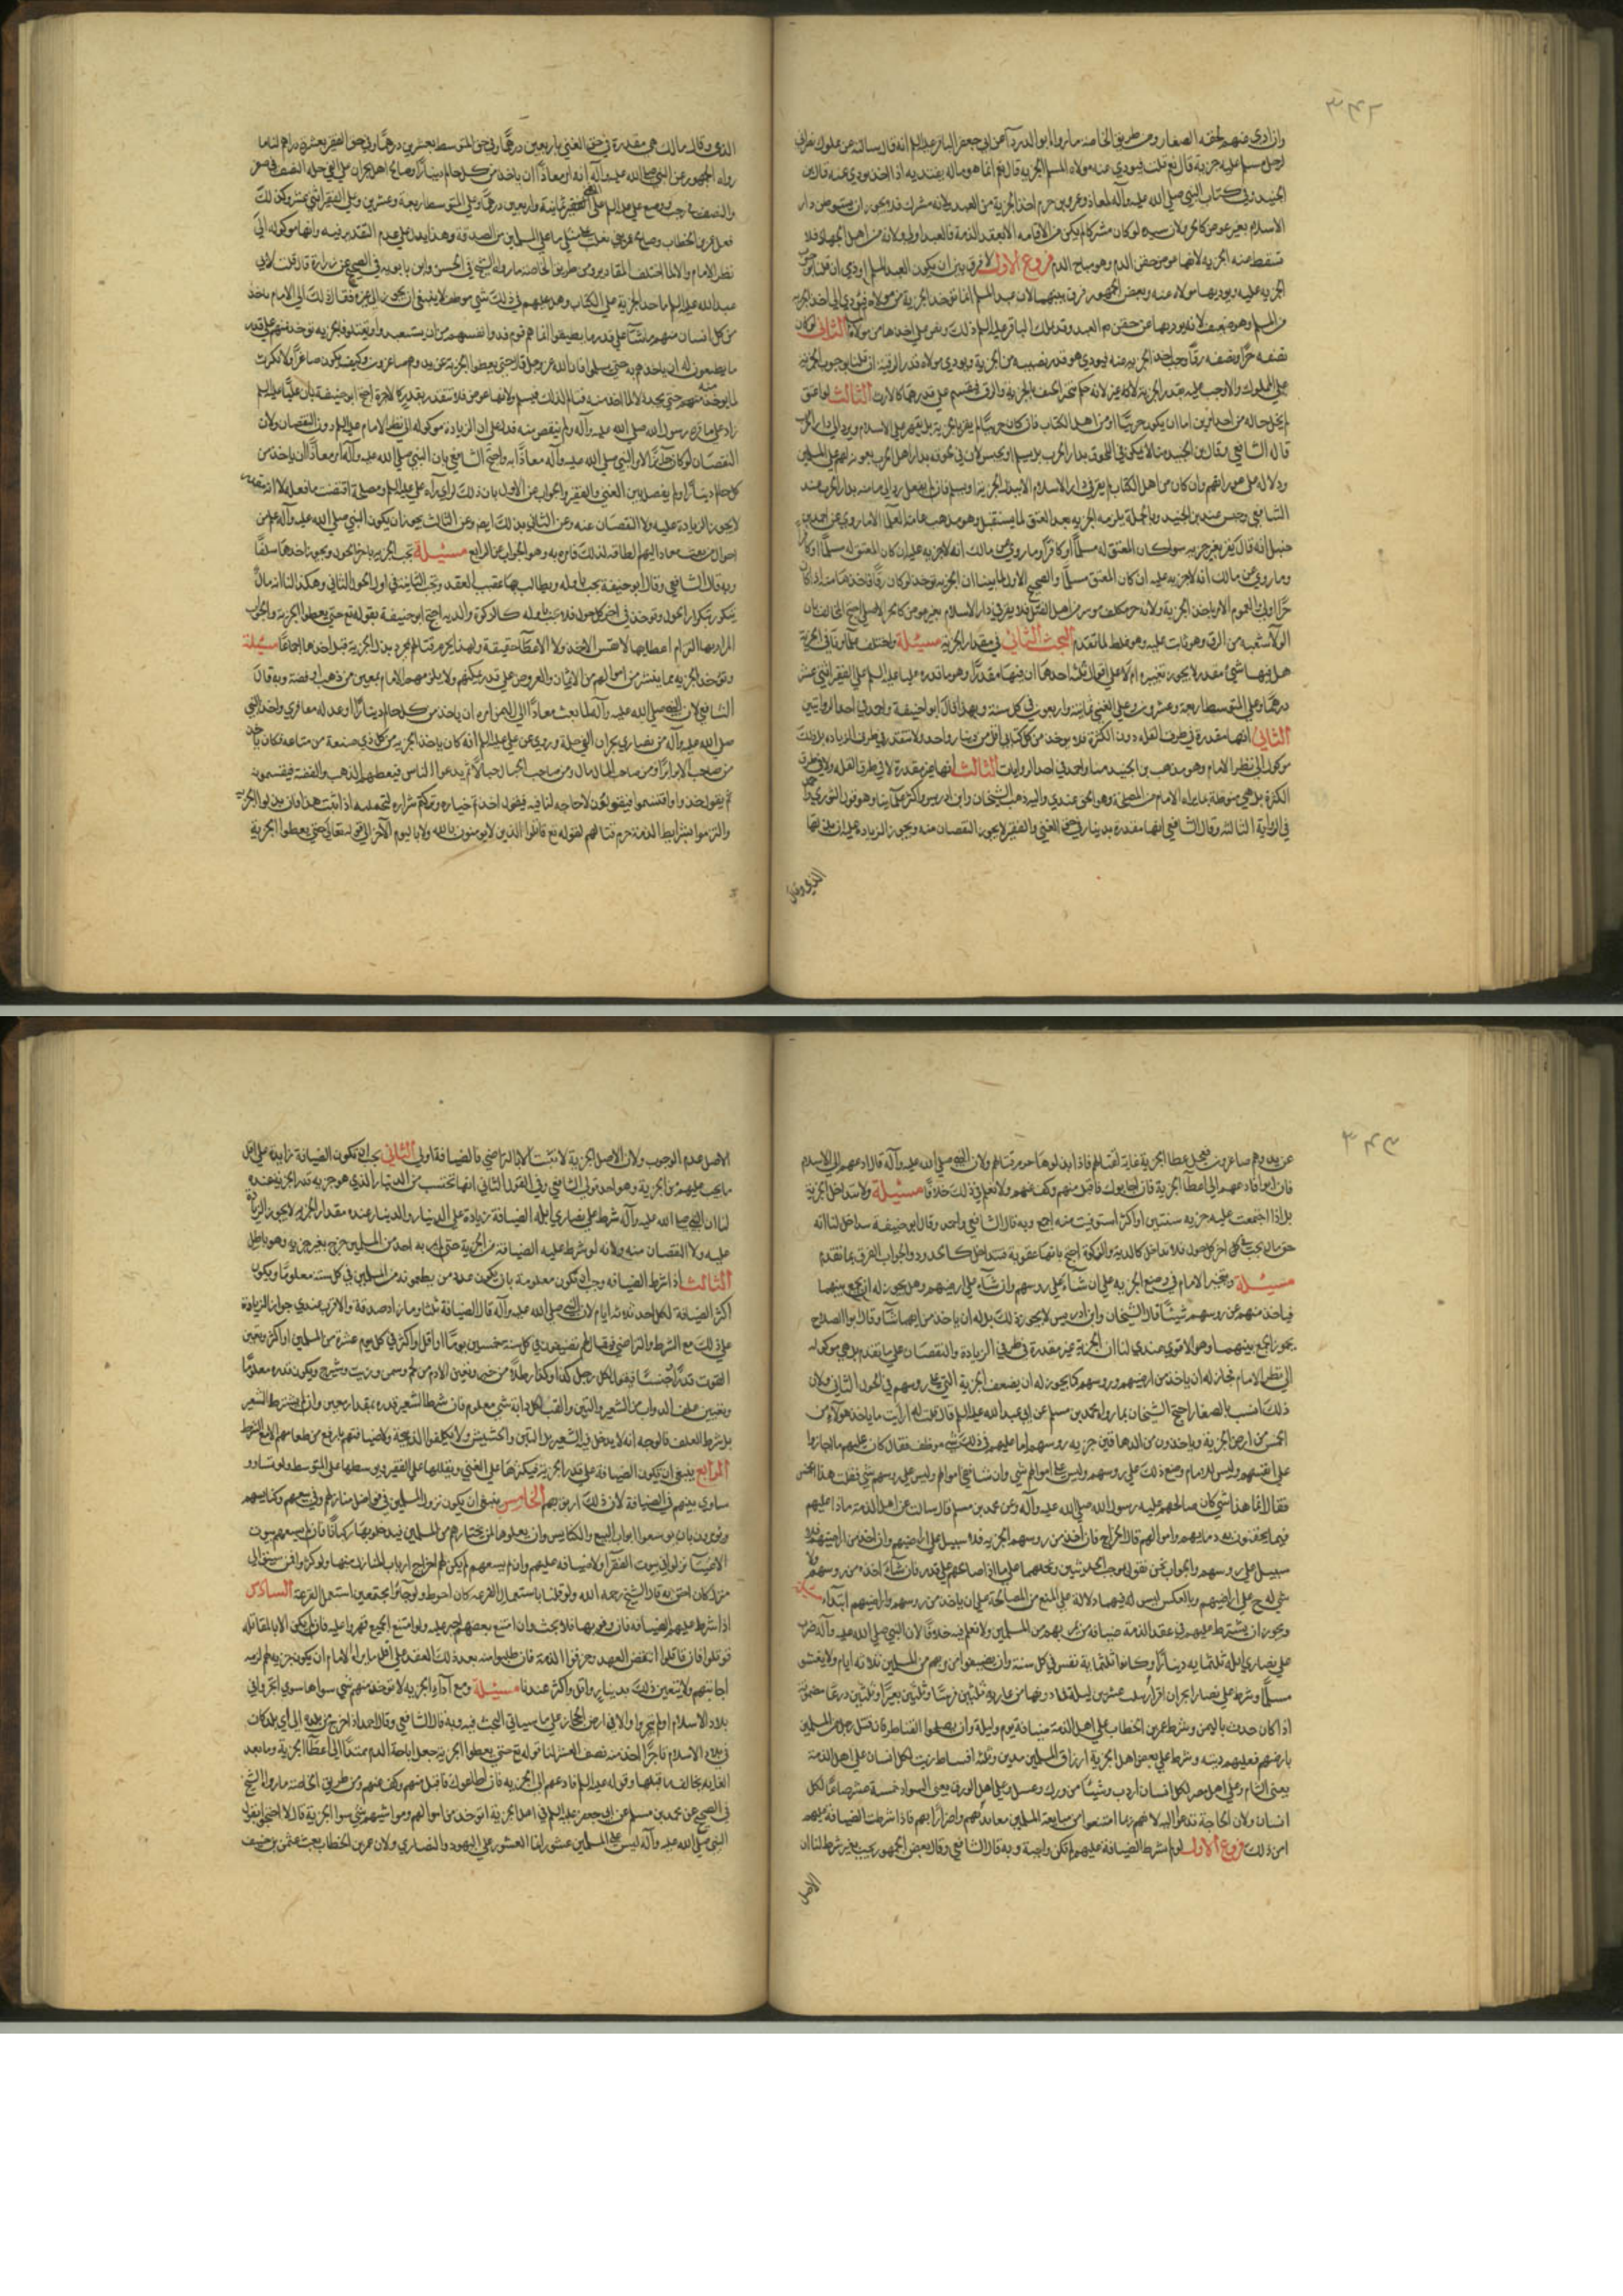 ٣٤٢
وان ادى منهم لحقه الصغار ومن طريق الخاصة ما رواه ابو الدرداء عن ابي جعفر الباقر عليه السلم انه قال سالته عن مملوك نصراني
لرجل مسلم عليه جزية قال نعم قلت فيودي عنه مولاه المسلم الجزية قال نعم انما هو ماله يفتديه اذا اخذ يودي عنه قال ابن
الجنيد وفي كتاب النبي صلى الله عليه وآله لمعاذ وعمرو بن حزم اخذ الجزية من العبد ولانه مشرك فلا يجوز ان يستوطن دار
الاسلام بغير عوض كالحر ولان سيده لو كان مشركا لم يكن من الاقامة الا بعقد الذمة فالعبد اولى ولانه من اهل الجهاد فلا
تسقط منه الجزية لانها عوض حقن الدم وهو مباح الدم فروع الاول لا فرق بين ان يكون العبد لمسلم او ذمي ان قلنا بوجوب
الجزية عليه ويوديها مولاه عنه وبعض الجمهور فرق بينهما لان عبد المسلم انما توخذ الجزية من مولاه فيودي الى اخذ الجزية
من المسلم وهو ضعيف لانه يوديها عن حقن دم العبد وقد علل الباقر عليه السلم ذلك ونص على اخذها من مولاه الثاني لو كان
نصفه حرا ونصفه رقا وجب اخذ الجزية منه فيودي هو قدر نصيبه من الجزية ويودي مولاه قدر الرقية ان قلنا بوجوب الجزية
على المملوك والا وجب عليه بقدر الجزية لانه حكم يتجزى يختلف بالحرية والرق فيقسم على قدرهما كالارث الثالث لو اعتق
لم يخل حاله من احد امرين اما ان يكون حربيا او من اهل الكتاب فان كان حربيا لم يقر بالجزية بل يقهر على الاسلام او يرد الى دار الحرب
قاله الشافعي وقال ابن الجنيد منا لا يمكن في اللحوق بدار الحرب بل يسلم او يحبس لان في لحوقه بدار اهل الحرب معونة لهم على المسلمين
ودلالة على عوراتهم وان كان من اهل الكتاب لم يقر في دار الاسلام الا ببذل الجزية او يسلم فان لم يفعل رد الى مامنه بدار الحرب عند
الشافعي وحبس عند ابن الجنيد وبالجملة يلزمه الجزية بعد العتق لما يستقبل وهو مذهب عامة العلما الا ما روي عن احمد بن
حنبل انه قال يقر بغير جزية سوا كان المعتق له مسلما او كافرا وما روي عن مالك انه لا جزية عليه ان كان المعتق له مسلما او كافرا
وما روي عن مالك انه لا جزية عليه ان كان المعتق مسلما والصحيح الاول لما بينا ان الجزية توخذ لو كان رقا فاخذها منه اذا كان
حرا اولى ولعموم الامر باخذ الجزية ولانه حر مكلف موسر من اهل القتل فلا يقر في دار الاسلام بغير عوض كالحر الاصلي احتج المخالف بان
الولا شعبة من الرق وهو ثابت عليه وهو غلط لما تقدم البحث الثاني في مقدار الجزية مسئلة واختلف علماونا في الجزية
هل فيها شيء مقدر لا يجوز تغييره ام لا على اقوال ثلثة احدها ان فيها مقدرا وهو ما قدره علي عليه السلم على الفقير اثني عشر
درهما وعلى المتوسط اربعة وعشرون وعلى الغني ثمانية واربعون في كل سنة وبهذا قال ابو حنيفة واحمد في احدى الروايتين
الثاني انها مقدرة في طرف القلة دون الكثرة فلا يوخذ من كل كتابي اقل من دينار واحد ولا تتقدر في طرف الزيادة بل ذلك
موكول الى نظر الامام وهو مذهب ابن الجنيد منا واحمد في احدى الروايات الثالث انها غير مقدرة لا في طرف القلة ولا في طرف
الكثرة بل هي منوطة بما يراه الامام من المصلحة وهو الحق عندي واليه ذهب الشيخان وابن ادريس واكثر علمآينا وهو قول الثوري واحمد
في الرواية الثالثة وقال الشافعي انها مقدرة بدينار في حق الغني والفقير لا يجوز النقصان منه ويجوز الزيادة عليه ان بذلها
الذي وقال
الذمي وقال مالك هي مقدرة في حق الغني باربعين درهما وفي حق المتوسط بعشرين درهما وفي حق الفقير بعشرة دراهم لنا ما
رواه الجمهور عن النبي صلى الله عليه وآله انه امر معاذا ان ياخذ من كل حالم دينارا وصالح اهل نجران على الفي حلة النصف في صفر
والنصف في رجب ووضع علي عليه السلم على الغني ثمانية واربعين درهما وعلى المتوسط اربعة وعشرين وعلى الفقير اثني عشر وكذلك
فعل عمر بن الخطاب وصالح عمر بني تغلب على مثلي ما على المسلمين من الصدقة وهذا يدل على عدم التقدير فيه وانها موكولة الى
نظر الامام والا لما اختلف المقادير ومن طريق الخاصة ما رواه الشيخ في الحسن وابن بابويه في الصحيح عن زرارة قال قلت لابي
عبد الله عليه السلم ما حد الجزية على اهل الكتاب وهل عليهم في ذلك شي موظف لا ينبغي ان يجوز الى غيره فقال ذلك الى الامام ياخذ
من كل انسان منهم ما شآء على قدر ما يطيقوا انما هم قوم فدوا انفسهم من ان يستعبدوا او يقتلوا فالجزية توخذ منهم على قدر
ما يطيقون له ان ياخذهم به حتى يسلموا فان الله عز وجل قال حتى يعطوا الجزية عن يد وهم صاغرون وكيف يكون صاغرا ولا يكترث
لما يوخذ منه حتى يجد ذلا لما اخذ منه فيالم لذلك فيسلم ولانها عوض فلا تتقدر بقدر كالاجرة احتج ابو حنيفة بان عليا عليه السلم
زاد على ما قرره رسول الله صلى الله عليه وآله ولم ينقص منه فدل على ان الزيادة موكولة الى نظر الامام عليه السلم دون النقصان ولان
مسئلة تجب الجزية باخر الحول ويجوز اخذها سلفا
وبه قال الشافعي وقال ابو حنيفة تجب باوله ويطالب بها عقيب العقد وتجب الثانية في اول الحول الثاني وهكذا لنا انه مال
يتكرر بتكرار الحول ويوخذ في اخر كل حول فلا يجب باوله كالزكوة والدية احتج ابو حنيفة بقوله تع حتى يعطوا الجزية والجواب
المراد بها التزام اعطايها لا نفس الاخذ ولا الاعطآء حقيقة ولهذا يحرم قتالهم بمجرد بذل الجزية قبل اخذها اجماعا مسئلة
وتوخذ الجزية مما يتيسر من اموالهم من الاثمان والعروض على قدر تمكنهم ولا يلزمهم الامام بمعين من ذهب او فضة وبه قال
الشافعي لان النبي صلى الله عليه وآله لما بعث معاذا الى اليمن امره ان ياخذ من كل حالم دينارا او عدله معافري واخذ النبي
صلى الله عليه وآله من نصارى نجران الفي حلة وروي عن علي عليه السلم انه كان ياخذ الجزية من كل ذي صنعة من متاعه فكان ياخذ
من صاحب الابر ابرا ومن صاحب المال مال ومن صاحب الحبال حبالا ثم يدعوا الناس فيعطيهم الذهب والفضة فيقتسمونه
ثم يقول خذوا واقتسموا فيقولون لا حاجة لنا فيه فيقول اخذتم خياره وتركتم شراره لتحملنه اذا ثبت هذا فان بذلوا الجزية
والتزموا بشرايط الذمة حرم قتالهم لقوله تع قاتلوا الذين لا يومنون بالله ولا باليوم الآخر الى قوله تعالى حتى يعطوا الجزية
٣٤٣
عن يد وهم صاغرون فجعل اعطا الجزية غاية لقتالهم فاذا بذلوها حرم قتالهم ولان النبي صلى الله عليه وآله قال ادعهم الى الاسلام
فان ابوا فادعهم الى اعطآء الجزية فان اجابوك فاقبل منهم وكف عنهم ولا نعلم في ذلك خلافا مسئلة ولا تتداخل الجزية
بل اذا اجتمعت عليه جزية سنتين او اكثر استوفيت منه اجمع وبه قال الشافعي واحمد وقال ابو حنيفة تتداخل لنا انه
حق مالي يجب في اخر كل حول فلا تداخل كالدية والزكوة احتج بانها عقوبة فتداخل كالحدود والجواب الفرق بما تقدم
مسئلة ويتخير الامام في وضع الجزية على ان شآء على روسهم وان شآء على ارضيهم وهل يجوز له ان يجمع بينهما
فياخذ منهم عن روسهم شيئا قال الشيخان وابن ادريس لا يجوز ذلك بل له ان ياخذ من ايهما شآء وقال ابو الصلاح
يجوز الجمع بينهما وهو الاقوى عندي لنا ان الجزية غير مقدرة في طرفي الزيادة والنقصان على ما تقدم بل هي موكولة
الى نظر الامام فجاز له ان ياخذ من ارضيهم وروسهم كما يجوز له ان يضعف الجزية التي على روسهم في الحول الثاني ولان
ذلك انسب بالصغار احتج الشيخان بما رواه محمد بن مسلم عن ابي عبد الله عليه السلم قال قلت له ارايت ما ياخذ هولآء من
الخمس من ارض الجزية وياخذون من الدهاقين جزية روسهم اما عليهم في ذلك شي موظف فقال كان عليهم ما اجازوا
على انفسهم وليس للامام وضع ذلك على روسهم وليس على اموالهم شي وان شا فعلى اموالهم وليس على روسهم شي فقلت هذا الخمس
فقال انما هذا شي كان صالحهم عليه رسول الله صلى الله عليه وآله وعن محمد بن مسلم قال سالته عن اهل الذمة ماذا عليهم
فيما يحقنون به دمايهم واموالهم قال الخراج فان اخذ من روسهم الجزية فلا سبيل على ارضيهم وان اخذ من ارضيهم فلا
سبيل على روسهم
شي له ح على ارضيهم وبالعكس ليس له فيهما دلالة على المنع من المصالحة على ان ياخذ من روسهم وارضيهم ابتدآء مسئلة
ويجوز ان يشترط عليهم في عقد الذمة ضيافة من يمر بهم من المسلمين ولا نعلم فيه خلافا لان النبي صلى الله عليه وآله ضرب
على نصارى ايلة ثلثماية دينارا وكانوا ثلثماية نفس في كل سنة وان يضيفوا من مر بهم من المسلمين ثلاثة ايام ولا يغشوا
اذا كان حدث باليمن وشرط عمر بن الخطاب على اهل الذمة ضيافة يوم وليلة وان يصلحوا القناطر وان قتل رجل من المسلمين
بارضهم فعليهم ديته وشرط على بعض اهل الجزية ارزاق المسلمين مدين وثلثة اقساط زيت لكل انسان على اهل الذمة
انسان ولان الحاجة تدعوا اليه لانهم ربما امتنعوا من مبايعة المسلمين معاندة لهم واضرارا بهم فاذا شرطت الضيافة عليهم
امن ذلك فروع الاول لو لم يشترط الضيافة عليهم لم تكن واجبة وبه قال الشافعي وقال بعض الجمهور يجب بغير شرط لنا ان
الاصل
الاصل عدم الوجوب ولان الاصل الجزية لا تثبت الا بالتراضي فالضيافة اولى الثاني يجب ان تكون الضيافة زايدة على اقل
ما يجب عليهم من الجزية وهو احد قولي الشافعي وفي القول الثاني انها تحتسب من الدينار الذي هو جزية قدر الجزية عنده
لنا ان النبي صلى الله عليه وآله شرط على نصارى ايلة الضيافة زيادة على الدينار والدينار عنده مقدار الجزية لا يجوز الزيادة
عليه ولا النقصان منه ولانه لو شرط عليه الضيافة من الجزية حتى لم يمر به احد من المسلمين خرج بغير جزية وهو باطل
الثالث اذا شرط الضيافة وجب ان تكون معلومة بان يكون عدد من يطعمونه من المسلمين في كل سنة معلوما ويكون
اكثر الضيافة لكل احد ثلاثة ايام لان النبي صلى الله عليه وآله قال الضيافة ثلثة وما زاد صدقة والاقرب عندي جواز الزيادة
على ذلك مع الشرط والتراضي فيقال لهم تضيفون في كل سنة خمسين يوما او اقل او اكثر في كل يوم عشرة من المسلمين او اكثر ويعين
القوت قدرا وجنسا فيقول لكل رجل كذا وكذا رطلا من خبز ويعين الادم من لحم وسمن وزيت وشيرج ويكون قدره معلوما
ويعين علف الدواب من الشعير والتبن والقت لكل دابة شي معلوم فان شرط الشعير قدره بمقدار معين وان لم يشترط الشعير
بل شرط العلف فالوجه انه لا يدخل فيه الشعير بل التبن والحشيش ولا يكلفوا الذبيحة ولا ضيافتهم بارفع من طعامهم الا مع الشرط
الرابع ينبغي ان تكون الضيافة على قدر الجزية فيكثرها على الغني ويقللها على الفقير ويوسطها على المتوسط ولو تساووا
ساوى بينهم في الضيافة لان ذلك ارفق بهم الخامس ينبغي ان يكون نزول المسلمين في فواضل منازلهم وفي بيعهم وكنايسهم
ويومرون بان يوسعوا ابواب البيع والكنايس وان يعلوها لمن يجتاز بهم من المسلمين فيدخلونها ركبانا فان لم يسعهم بيوت
الاغنيآء نزلوا في بيوت الفقرآء ولا ضيافة عليهم وان لم يسعهم لم يكن لهم اخراج ارباب المنازل منها ولو كثروا فمن سبق الى
منزل كان احق به قال الشيخ رحمه الله ولو قلنا باستعمال القرعة كان احوط ولو جآؤا مجتمعين استعمل القرعة السادس
اذا شرط عليهم الضيافة فان وفوا بها فلا بحث وان امتنع بعضهم اجبر عليه ولو امتنع الجميع قهروا عليه فان لم يمكن الا بالمقاتلة
قوتلوا فان قاتلوا انتقض العهد وخرقوا الذمة فان طلبوا منه بعد ذلك العقد على اقل ما يراه الامام ان يكون جزية لهم لزمه
اجابتهم ولا يتعين ذلك بدينار بل واقل واكثر عندنا مسئلة ومع ادآء الجزية لا توخذ منهم شي سواها سوى اتجروا في
بلاد الاسلام او لم يتجروا والا في ارض الحجاز على ما سياتي البحث فيه وبه قال الشافعي وقال احمد اذا خرج من بلده الى اي بلد كان
في بلاد الاسلام تاجرا اخذ منه نصف العشر لنا قوله تع حتى يعطوا الجزية جعل اباحة الدم ممتدا الى اعطآء الجزية وما بعد
الغاية يخالف ما قبلها وقوله عليه السلم فادعهم الى الجزية فان اطاعوك فاقبل منهم وكف عنهم ومن طريق الخاصة ما رواه الشيخ
في الصحيح عن محمد بن مسلم عن ابي جعفر عليه السلم في اهل الجزية ايوخذ من اموالهم ومواشيهم شي سوى الجزية قال لا احتج بقول
النبي صلى الله عليه وآله ليس على المسلمين عشور انما العشور على اليهود والنصارى ولان عمر بن الخطاب بعث عثمن بن حنيف